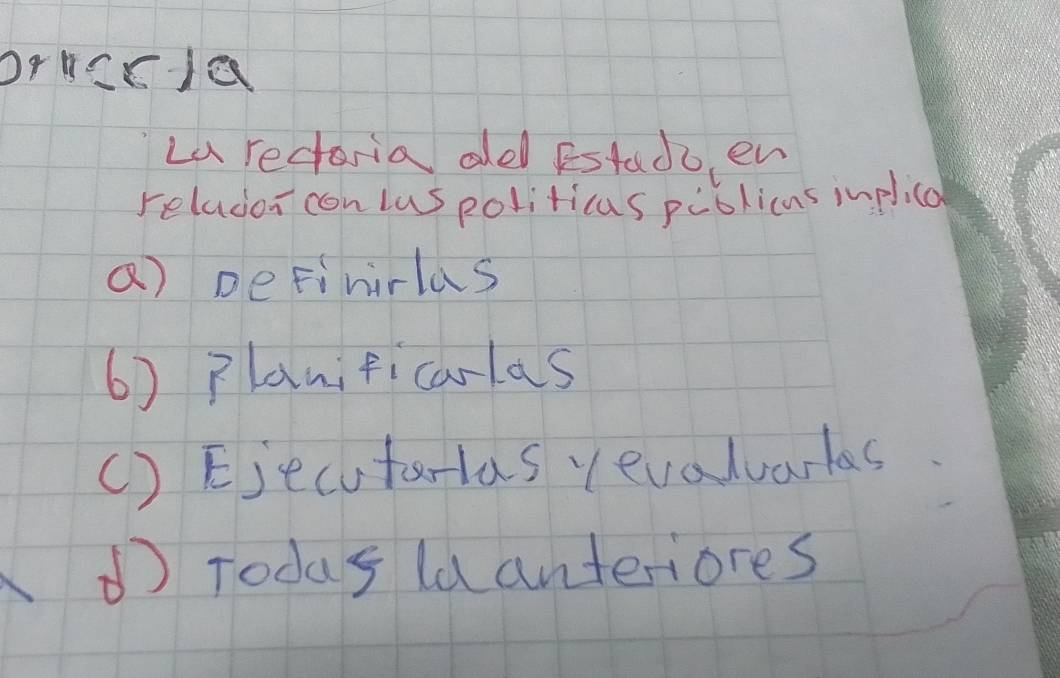 La rectoria del Estado, en
relación con las politicas públicas implica
a) Definirlas
b) Planificarlas
c) Ejecutarlas y evaluarlas.
d) Todas la anteriores